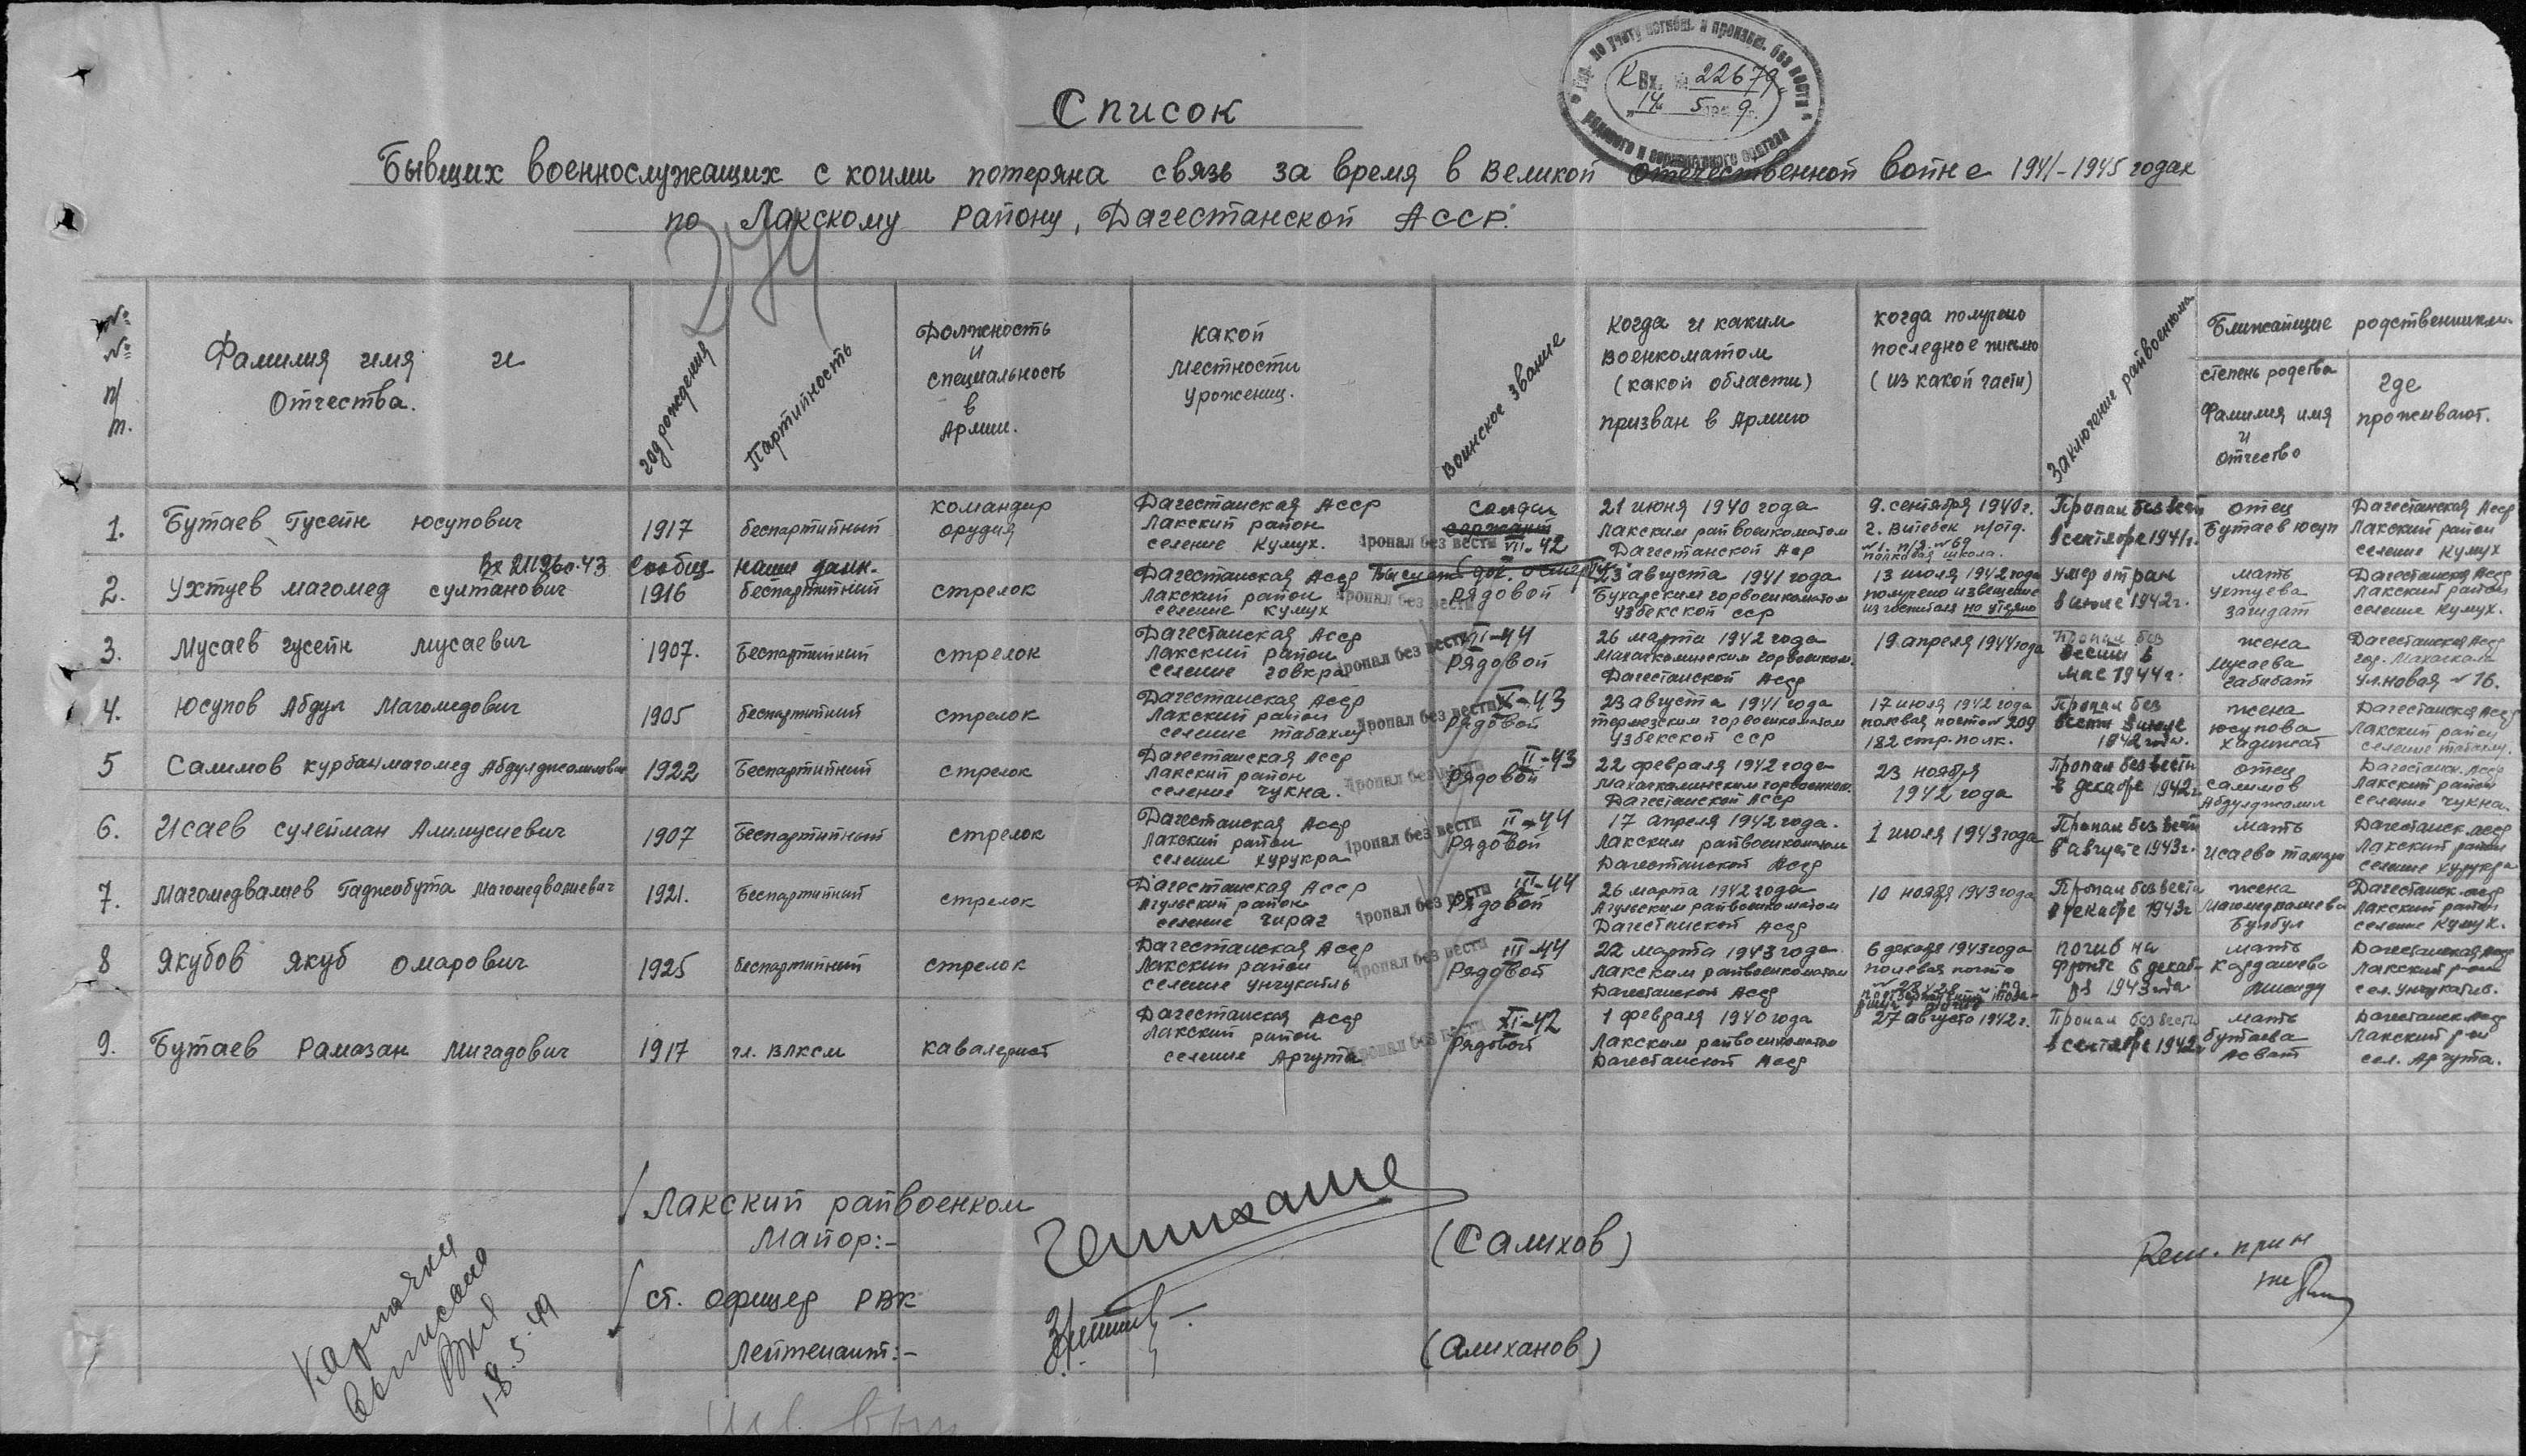 Упр. по учету погибш. и пропавш. без вести
рядового и сержантского состава
К Вх. № 22679
"14" 5 194 9 г.
Список
Бывших военнослужащих с коими потеряна связь за время в Великой Отечественной войне 1941-1945 годах
по Лакскому Району, Дагестанской АССР.
274
№ № п/п.
Фамилия имя и Отчества.
год рождения
Партийность
Должность и специальность в Армии.
какой местности уроженец.
Воинское звание
Когда и каким военкоматом (какой области) призван в Армию
когда получено последное письмо (из какой части)
Заключение райвоенкома
Ближайшие родственники
степень родства Фамилия имя и отчество
где проживают.
1. Бутаев Гусейн Юсупович
1917
беспартийный
командир орудия
Дагестанская Асср
Лакский район
селение Кумух.
Пропал без вести VII-42
солдат
сержант
21 июня 1940 года
Лакским райвоенкоматом
Дагестанской Аср
9. сентября 1940г.
г. Витебск п/отд.
№1. п/я №69
полковая школа.
Пропал без вести
в сентябре 1941г.
отец
Бутаев Юсуп
Дагестанская Асср
Лакский район
селение Кумух
Вх 211960.43 Сообщ. наши данн.
2. Ухтуев магомед султанович
1916
беспартийный
стрелок
Дагестанская Асср
Лакский район
селение Кумух
Пропал без вести
рядовой
23 августа 1941 года
Бухарским горвоенкоматом
Узбекской сср
13 июля 1942 года
получено извещение
из госпиталя но утеряно
умер от ран
в июле 1942г.
мать
Ухтуева
Загидат
Дагестанская Асср
Лакский район
селение Кумух.
3. Мусаев гусейн мусаевич
1907.
Беспартийный
стрелок
Дагестанская Асср
Лакский район
селение говкра
Пропал без вести VI-44
рядовой
26 марта 1942 года
Махачкалинским горвоенком.
Дагестанской Асср
19 апреля 1944 года
Пропал без
вести в
мае 1944г.
жена
Мусаева
Габибат
Дагестанская Асср
гор. Махачкала
ул. новая №16.
4. Юсупов Абдул Магомедович
1905
беспартийный
стрелок
Дагестанская Асср
Лакский район
селение табахлу
Пропал без вести X-43
рядовой
23 августа 1941 года
термезским горвоенкоматом
Узбекской сср
17 июля 1942 года
полевая почта № 209
182 стр. полк.
Пропал без
вести в июле
1942 года.
жена
Юсупова
хадижат
Дагестанская Асср
Лакский район
5 Салимов курбанмагомед Абдулджалилович
1922
Беспартийный
стрелок
Дагестанская Асср
Лакский район
селение чукна.
Пропал без вести II-43
рядовой
22 февраля 1942 года
Махачкалинским горвоенком.
Дагестанской Асср
23 ноября
1942 года
Пропал без вести
в декабре 1942г.
отец
салимов
Абдулджалил
Дагестанск. Асср
Лакский район
селение чукна.
6. Исаев сулейман Алимусиевич
1907
Беспартийный
стрелок
Дагестанская Асср
Лакский район
селение хурукра
Пропал без вести II-44
рядовой
17 апреля 1942 года.
Лакским райвоенкоматом
Дагестанской Асср
1 июля 1943 года
Пропал без вести
в августе 1943г.
мать
Исаева
Дагестанск. асср
Лакский район
селение хурукра
7. Магомедвалиев Гаджибута магомедвалиевич
1921.
Беспартийный
стрелок
Дагестанская Асср
Агульский район
селение чираг
Пропал без вести III-44
рядовой
26 марта 1942 года
Агульским райвоенкоматом
Дагестанской Асср
10 ноября 1943 года
Пропал без вести
в декабре 1943г
жена
Магомедвалиева
Булбул
Дагестанск. асср
Лакский район
селение Кумух.
8 Якубов якуб Омарович
1925
беспартийный
стрелок
Дагестанская Асср
Лакский район
селение Унчукатль
Пропал без вести III-44
рядовой
22 марта 1943 года
Лакским райвоенкоматом
Дагестанской Асср
6 декабря 1943 года
полевая почта
погиб на
фронте 6 декаб-
ря 1943 года
мать
Кардашева
Дагестанская Асср
Лакский р-он
сел. Унчукатль.
9. Бутаев Рамазан мигадович
1917
чл. ВЛКСМ
кавалерист
Дагестанская Асср
Лакский район
селение Аргута
Пропал без вести XI-42
рядовой
1 февраля 1940 года
Лакским райвоенкоматом
Дагестанской Асср
27 августа 1942г.
Пропал без вести
в сентябре 1942г
мать
бутаева
Асват
Дагестанск. асср
Лакский р-он
сел. Аргута.
Лакский райвоенком
Майор:- (Салихов)
ст. офицер РВК
Лейтенант:- (Алиханов)
Карточки
выписано
18.5.49